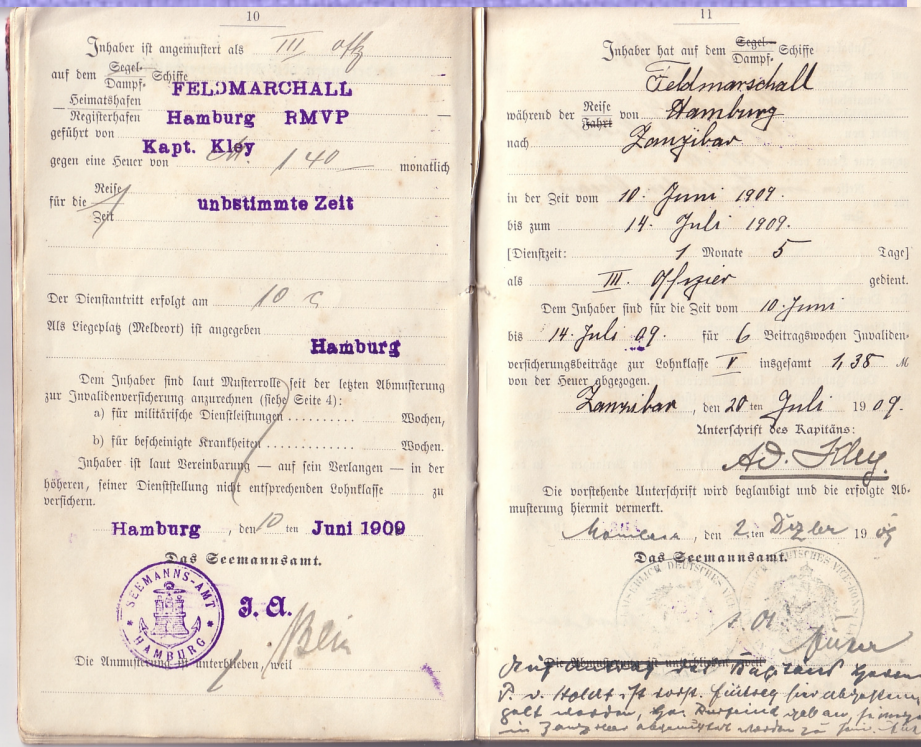 10
Inhaber ist angemustert als III Offz
auf dem Segel- Dampf- Schiffe
FELDMARCHALL
Heimatshafen
Registerhafen Hamburg RMVP
geführt von
Kapt. Kley
gegen eine Heuer von M. 140 monatlich
für die Reise
Zeit unbstimmte Zeit
Der Dienstantritt erfolgt am 10
Als Liegeplatz (Meldeort) ist angegeben
Hamburg
Dem Inhaber sind laut Musterrolle seit der letzten Abmusterung
zur Invalidenversicherung anzurechnen (siehe Seite 4):
a) für militärische Dienstleistungen .......... Wochen,
b) für bescheinigte Krankheiten .............. Wochen.
Inhaber ist laut Vereinbarung — auf sein Verlangen — in der
höheren, seiner Dienststellung nicht entsprechenden Lohnklasse zu
versichern.
Hamburg, den 10 ten Juni 1909
Das Seemannsamt.
SEEMANNS-AMT HAMBURG
J. A.
Die Anmusterung ist unterblieben, weil
11
Inhaber hat auf dem Segel- Dampf- Schiffe
Feldmarschall
während der Reise Fahrt von Hamburg
nach Zanzibar
in der Zeit vom 10. Juni 1909.
bis zum 14. Juli 1909.
[Dienstzeit: 1 Monate 5 Tage]
als III. Offizier gedient.
Dem Inhaber sind für die Zeit vom 10. Juni
bis 14. Juli 09. für 6 Beitragswochen Invaliden-
versicherungsbeiträge zur Lohnklasse V insgesamt 1,38 M
von der Heuer abgezogen.
Zanzibar, den 20 ten Juli 1909.
Unterschrift des Kapitäns:
Ad. Kley.
Die vorstehende Unterschrift wird beglaubigt und die erfolgte Ab-
musterung hiermit vermerkt.
, den 2. ten Dezber 1909
Das Seemannsamt.
Die Abmusterung ist unterblieben, weil